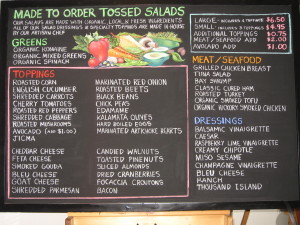 MADE TO ORDER TOSSED SALADS
OUR SALADS ARE MADE WITH ORGANIC, LOCAL & FRESH INGREDIENTS
ALL OF OUR SALAD DRESSINGS & SPECIALTY TOPPINGS ARE MADE IN HOUSE
BY OUR ARTISAN CHEF
GREENS
ORGANIC ROMAINE
ORGANIC MIXED GREENS
ORGANIC SPINACH
TOPPINGS
ROASTED CORN
ENGLISH CUCUMBER
SHREDDED CARROTS
CHERRY TOMATOES
ROASTED RED PEPPERS
SHREDDED CABBAGE
ROASTED MUSHROOMS
AVOCADO (ADD $1.00)
JICAMA
CHEDDAR CHEESE
FETA CHEESE
SMOKED GOUDA
BLEU CHEESE
GOAT CHEESE
SHREDDED PARMESAN
MARINATED RED ONION
ROASTED BEETS
BLACK BEANS
CHICK PEAS
EDAMAME
KALAMATA OLIVES
HARD BOILED EGGS
MARINATED ARTICHOKE HEARTS
CANDIED WALNUTS
TOASTED PINENUTS
SLICED ALMONDS
DRIED CRANBERRIES
FOCACCIA CROUTONS
BACON
LARGE $6.50
SMALL $4.95
ADDITIONAL TOPPINGS $0.75
MEAT/SEAFOOD ADD $2.00
AVOCADO ADD $1.00
MEAT/SEAFOOD
GRILLED CHICKEN BREAST
TUNA SALAD
BAY SHRIMP
CLASSIC CURED HAM
ROASTED TURKEY
ORGANIC SMOKED TOFU
ORGANIC HICKORY SMOKED CHICKEN
DRESSINGS
BALSAMIC VINAIGRETTE
CAESAR
RASPBERRY LIME VINAIGRETTE
CREAMY CHIPOTLE
MISO SESAME
CHAMPAGNE VINAIGRETTE
BLEU CHEESE
RANCH
THOUSAND ISLAND